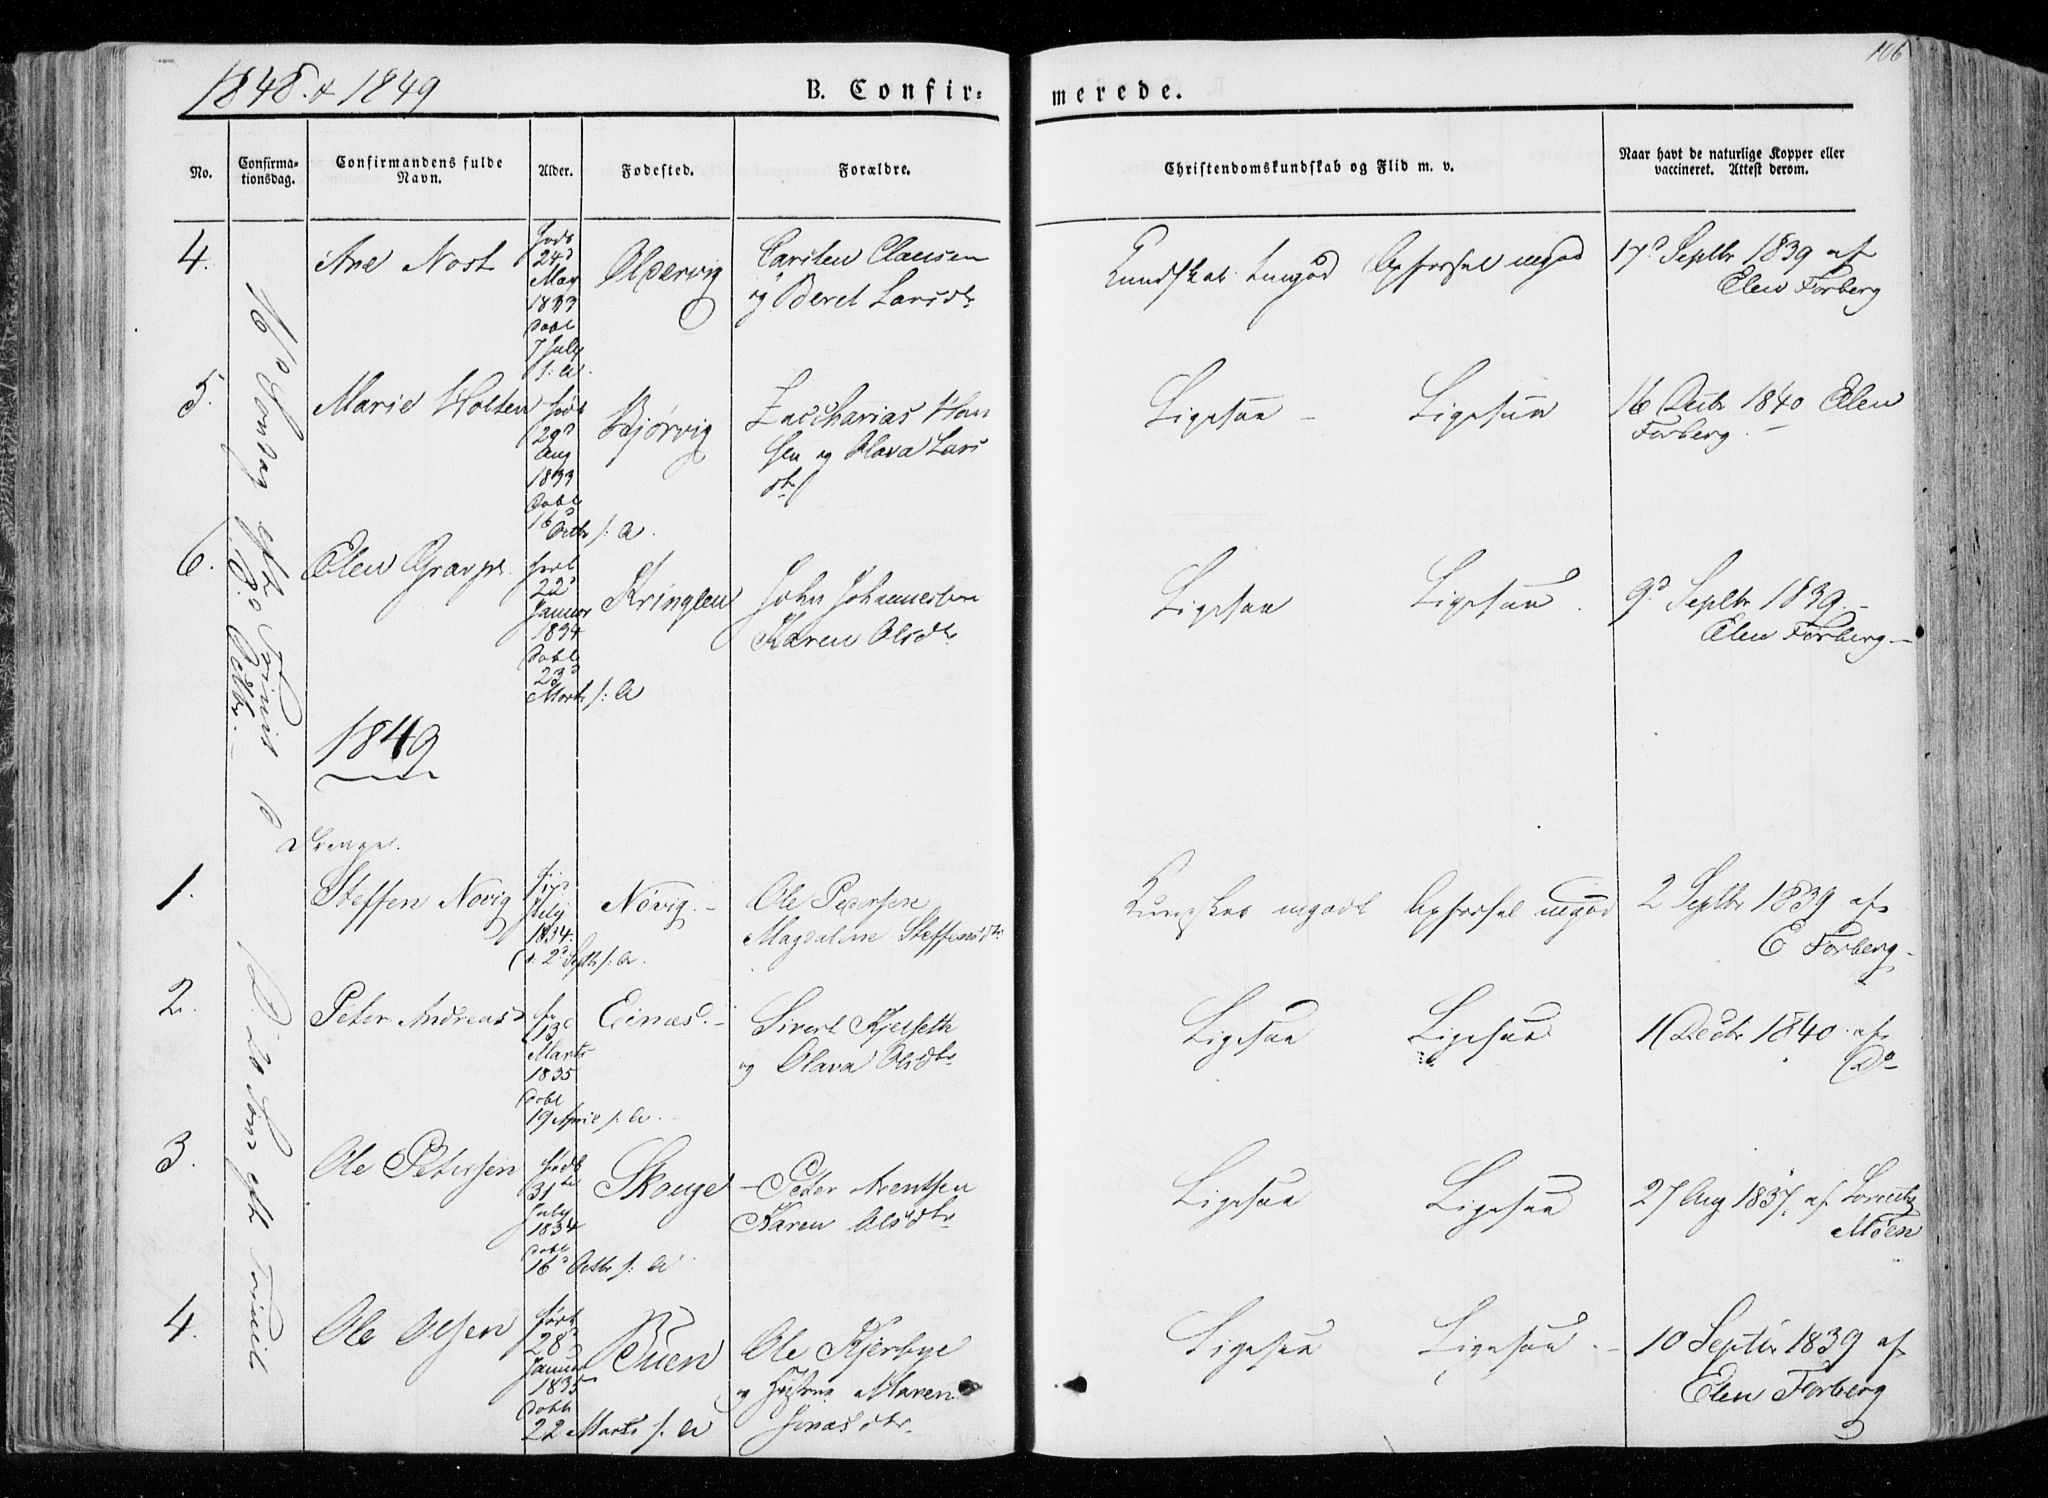 1848. & 1849
B. Confir-
merede.
106
No.
Confirma-
tionsdag.
Confirmandens fulde
Navn.
Alder.
Fødested.
Forældre.
Christendomskundskab og Flid m. v.
Naar havt de naturlige Kopper eller
vaccineret. Attest derom.
4.
Ane Nost
født
24d
May
1833
Døbt
7 July
s: A.
Oldervig
Carsten Clausen
og Beret Larsdtr
Kundskab temgod Opførsel mgod
17d Septbr 1839 af
Elen Forberg
5.
Marie Holten
født
29d
Aug
1833
Døbt
16d
Octbr s: A.
Bjørvig
Zaccharias Han
sen og Olava Lars
dtr
Ligesaa - Ligesaa
16 Octbr 1840 Elen
Forberg.
6.
Elen
født
22d
Januar
1834
Døbt
23d
Marts s: A
Kringlen
John Johannesen
Karen Olsdtr
Ligesaa Ligesaa.
9d Septbr 1839.-
Elen Forberg -
16d Søndag efter Trinit
8 Octbr. -
1849
Drenge.
1.
Steffen Novig
f.
17d
July
1834.
d: 2d Septbr s: A.
Növig. -
Ole Pedersen
Magdaline Steffensdtr
Kundskab megodt Opførsel megod
2 Septbr 1839 af
E Forberg.
2.
Peter Andreas
f.
13d
Marts
1835
Døbt
19 April s: A.
Einas. -
Sivert Kjelseth
og Olava Olsdtr
Ligesaa Ligesaa
1840. af
Do
3.
Ole Petersen
født
31te
July
1834
Døbt
16d Octbr s: A.
Skouge
- Peder Arentsen
Karen Olsdtr
Ligesaa Ligesaa
27 Aug 1837. af Lorentz
Moen
4.
Ole Olsen
født
28d
Januar
1835
Døbt
22 Marts s. A
Tuen
Ole Kjerbye
og Hustrue Maren
Jonasdtr.
Ligesaa Ligesaa. -
10 Septbr 1839 af
Elen Forberg
Sønd. efter Trinit